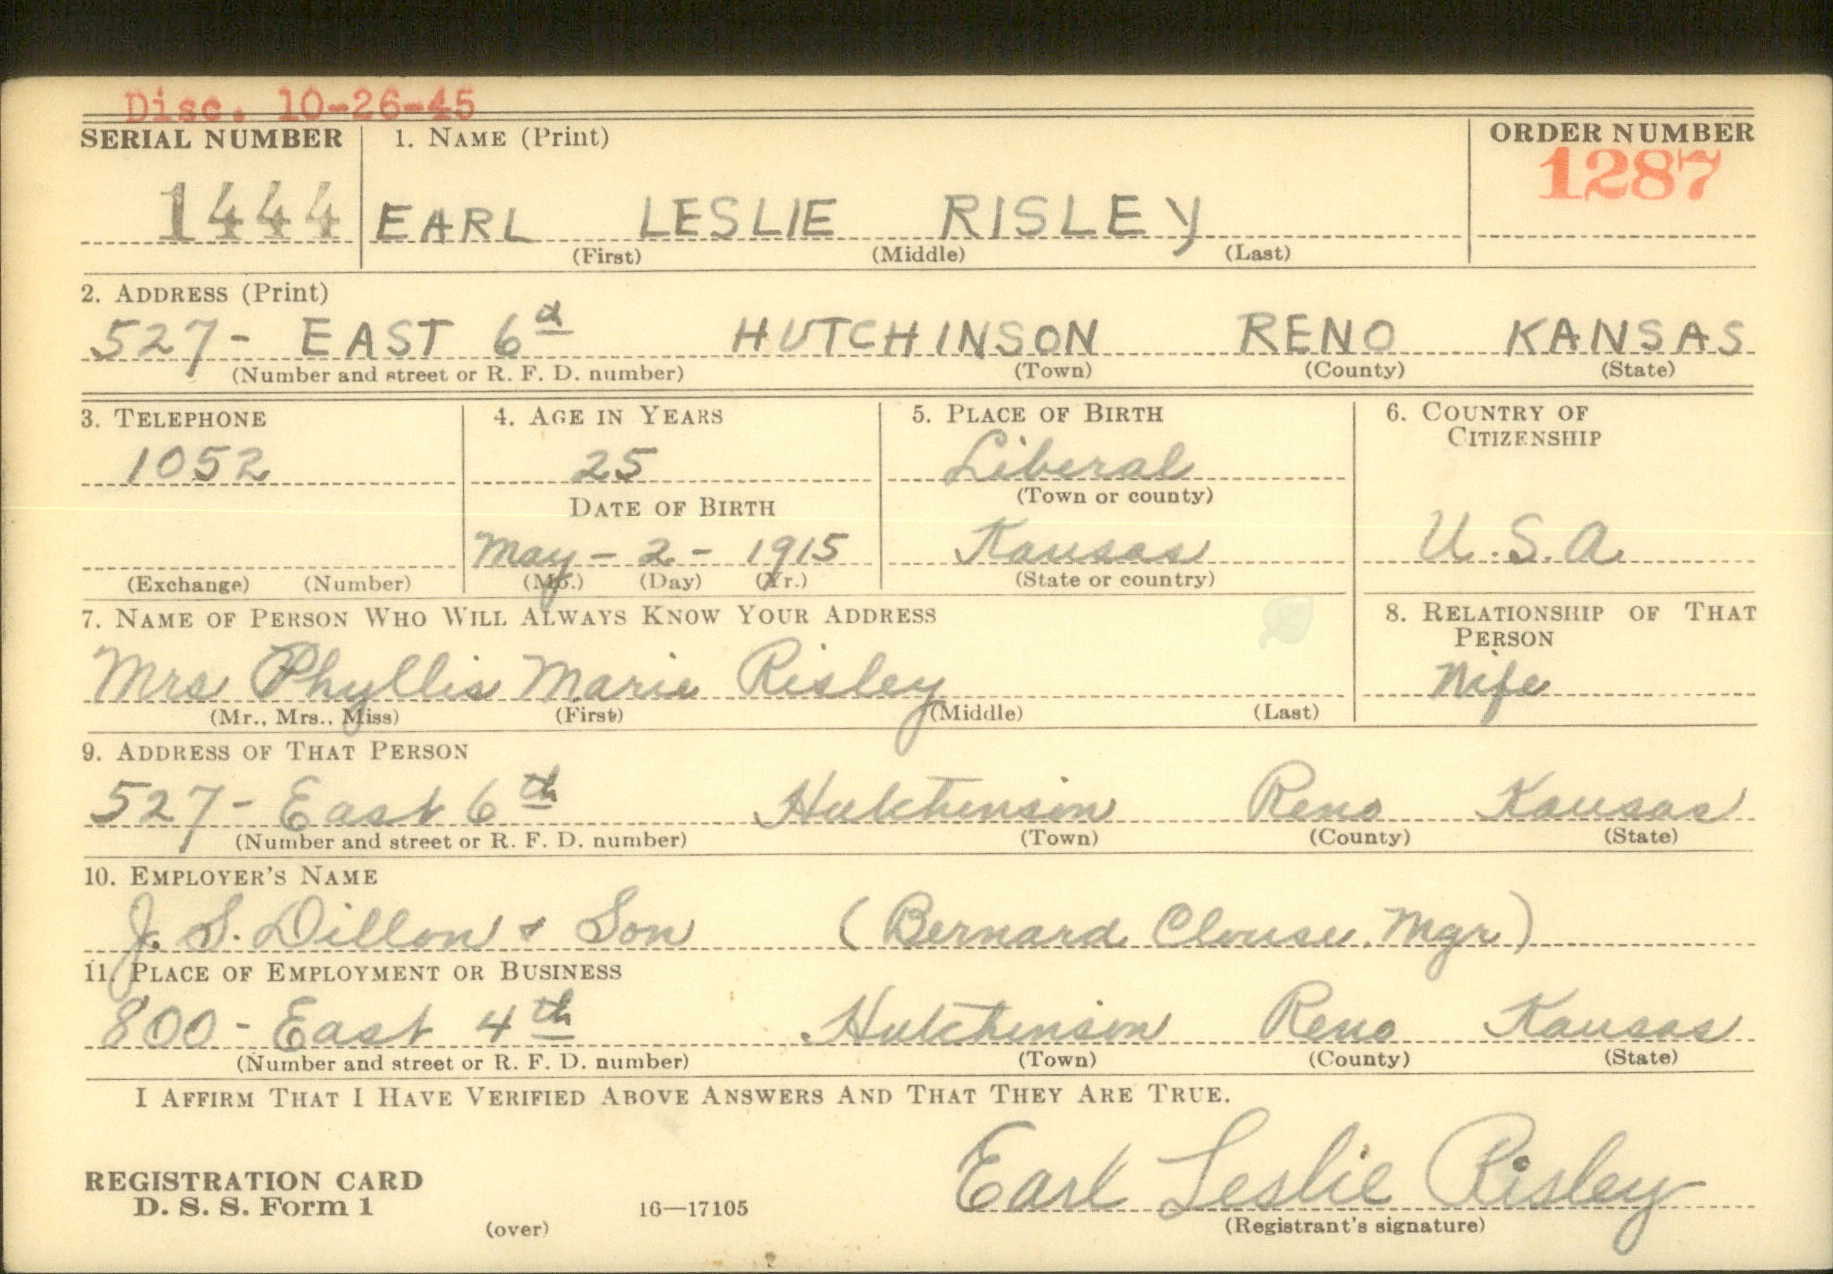 Disc. 10-26-45
SERIAL NUMBER 1. NAME (Print) ORDER NUMBER
1444 EARL LESLIE RISLEY 1287
(First) (Middle) (Last)
2. ADDRESS (Print)
527- EAST 6th HUTCHINSON RENO KANSAS
(Number and street or R. F. D. number) (Town) (County) (State)
3. TELEPHONE 4. AGE IN YEARS 5. PLACE OF BIRTH 6. COUNTRY OF
CITIZENSHIP
1052 25 Liberal
(Town or county)
DATE OF BIRTH
May - 2 - 1915 Kansas U.S.A.
(Exchange) (Number) (Mo.) (Day) (Yr.) (State or country)
7. NAME OF PERSON WHO WILL ALWAYS KNOW YOUR ADDRESS 8. RELATIONSHIP OF THAT
PERSON
Mrs Phyllis Marie Risley Wife
(Mr., Mrs., Miss) (First) (Middle) (Last)
9. ADDRESS OF THAT PERSON
527- East 6th Hutchinson Reno Kansas
(Number and street or R. F. D. number) (Town) (County) (State)
10. EMPLOYER'S NAME
J. S. Dillon & Son (Bernard Clouse. Mgr)
11. PLACE OF EMPLOYMENT OR BUSINESS
800 - East 4th Hutchinson Reno Kansas
(Number and street or R. F. D. number) (Town) (County) (State)
I AFFIRM THAT I HAVE VERIFIED ABOVE ANSWERS AND THAT THEY ARE TRUE.
Earl Leslie Risley
REGISTRATION CARD
D. S. S. Form 1 16—17105
(over) (Registrant's signature)